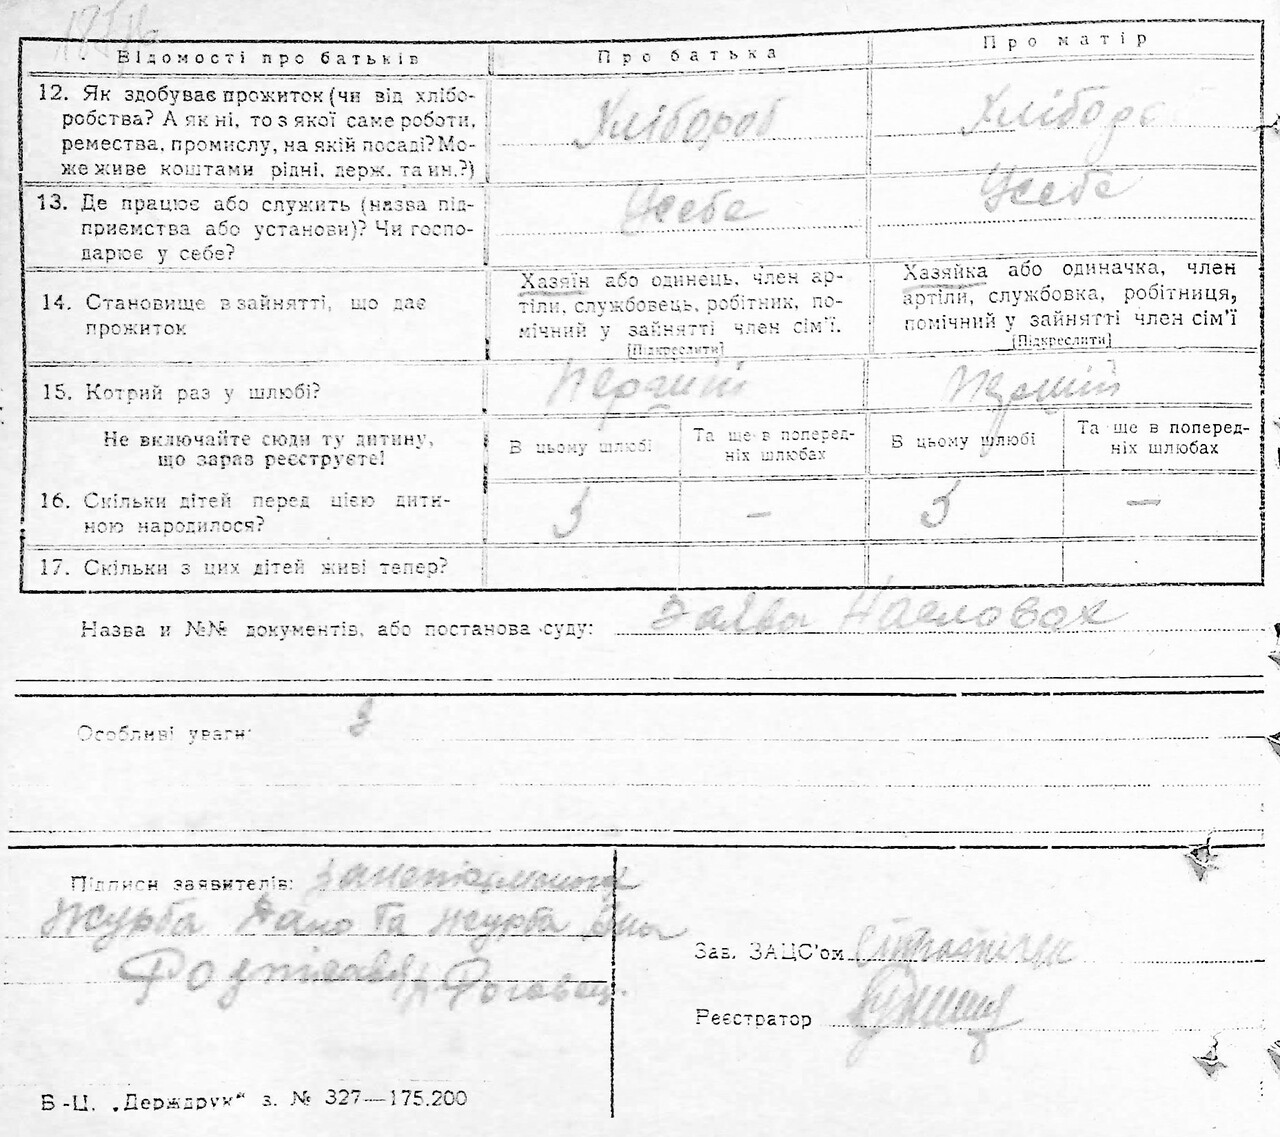 Відомості про батьків
Про батька
Про матір
12. Як здобуває прожиток (чи від хлібо-
робства? А як ні, то з якої саме роботи,
ремества, промислу, на якій посаді? Мо-
же живе коштами рідні, держ. та ин.?)
Хлібороб
Хлібороб
13. Де працює або служить (назва під-
приємства або установи)? Чи госпо-
дарює у себе?
У себе
У себе
14. Становище в зайнятті, що дає
прожиток
Хазяїн або одинець, член ар-
тіли, службовець, робітник, по-
мічний у зайнятті член сім'ї.
[Підкреслити]
Хазяйка або одиначка, член
артіли, службовка, робітниця,
помічний у зайнятті член сім'ї
[Підкреслити]
15. Котрий раз у шлюбі?
Перший
Перший
Не включайте сюди ту дитину,
що зараз реєструєте!
В цьому шлюбі
Та ще в поперед-
ніх шлюбах
В цьому шлюбі
Та ще в поперед-
ніх шлюбах
16. Скільки дітей перед цією дити-
ною народилося?
–
–
17. Скільки з цих дітей живі тепер?
Назва и №№ документів, або постанова суду: заява на словах
Особливі уваги:
Підписи заявителів:
Журба та Журба
Зав. ЗАЦС'ом
Реєстратор
Б-Ц. „Держдрук" з. № 327—175.200